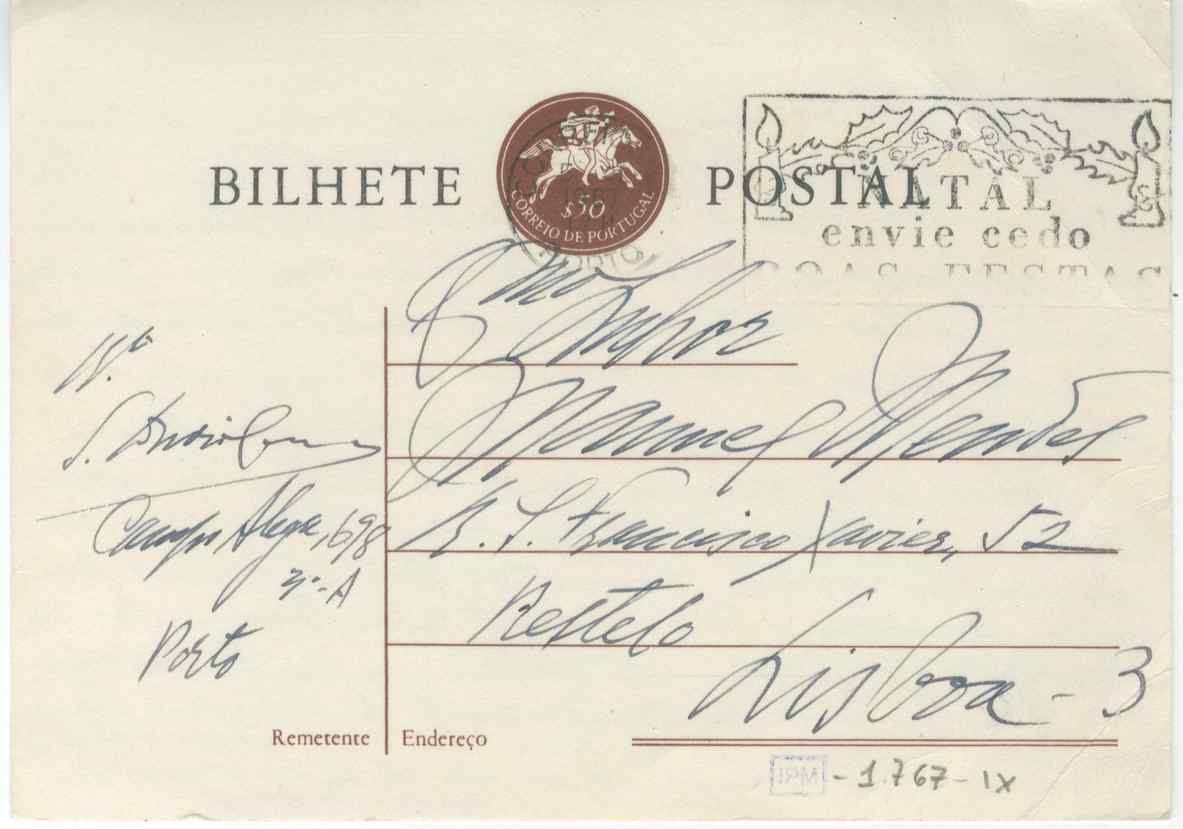 BILHETE POSTAL
1967
$50
CORREIO DE PORTUGAL
PORTO
NATAL
envie cedo
BOAS FESTAS
Exmo
Senhor
Manuel Mendes
R. S. Francisco Xavier, 52
Restelo
Lisboa - 3
S.
Campo Alegre, 1698
3º-A
Porto
Remetente
Endereço
IPM - 1.767-IX